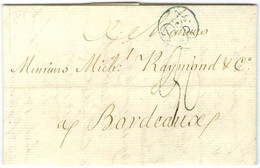 A Messieurs
Messieurs Michl. Raymond & Co.
a Bordeaux